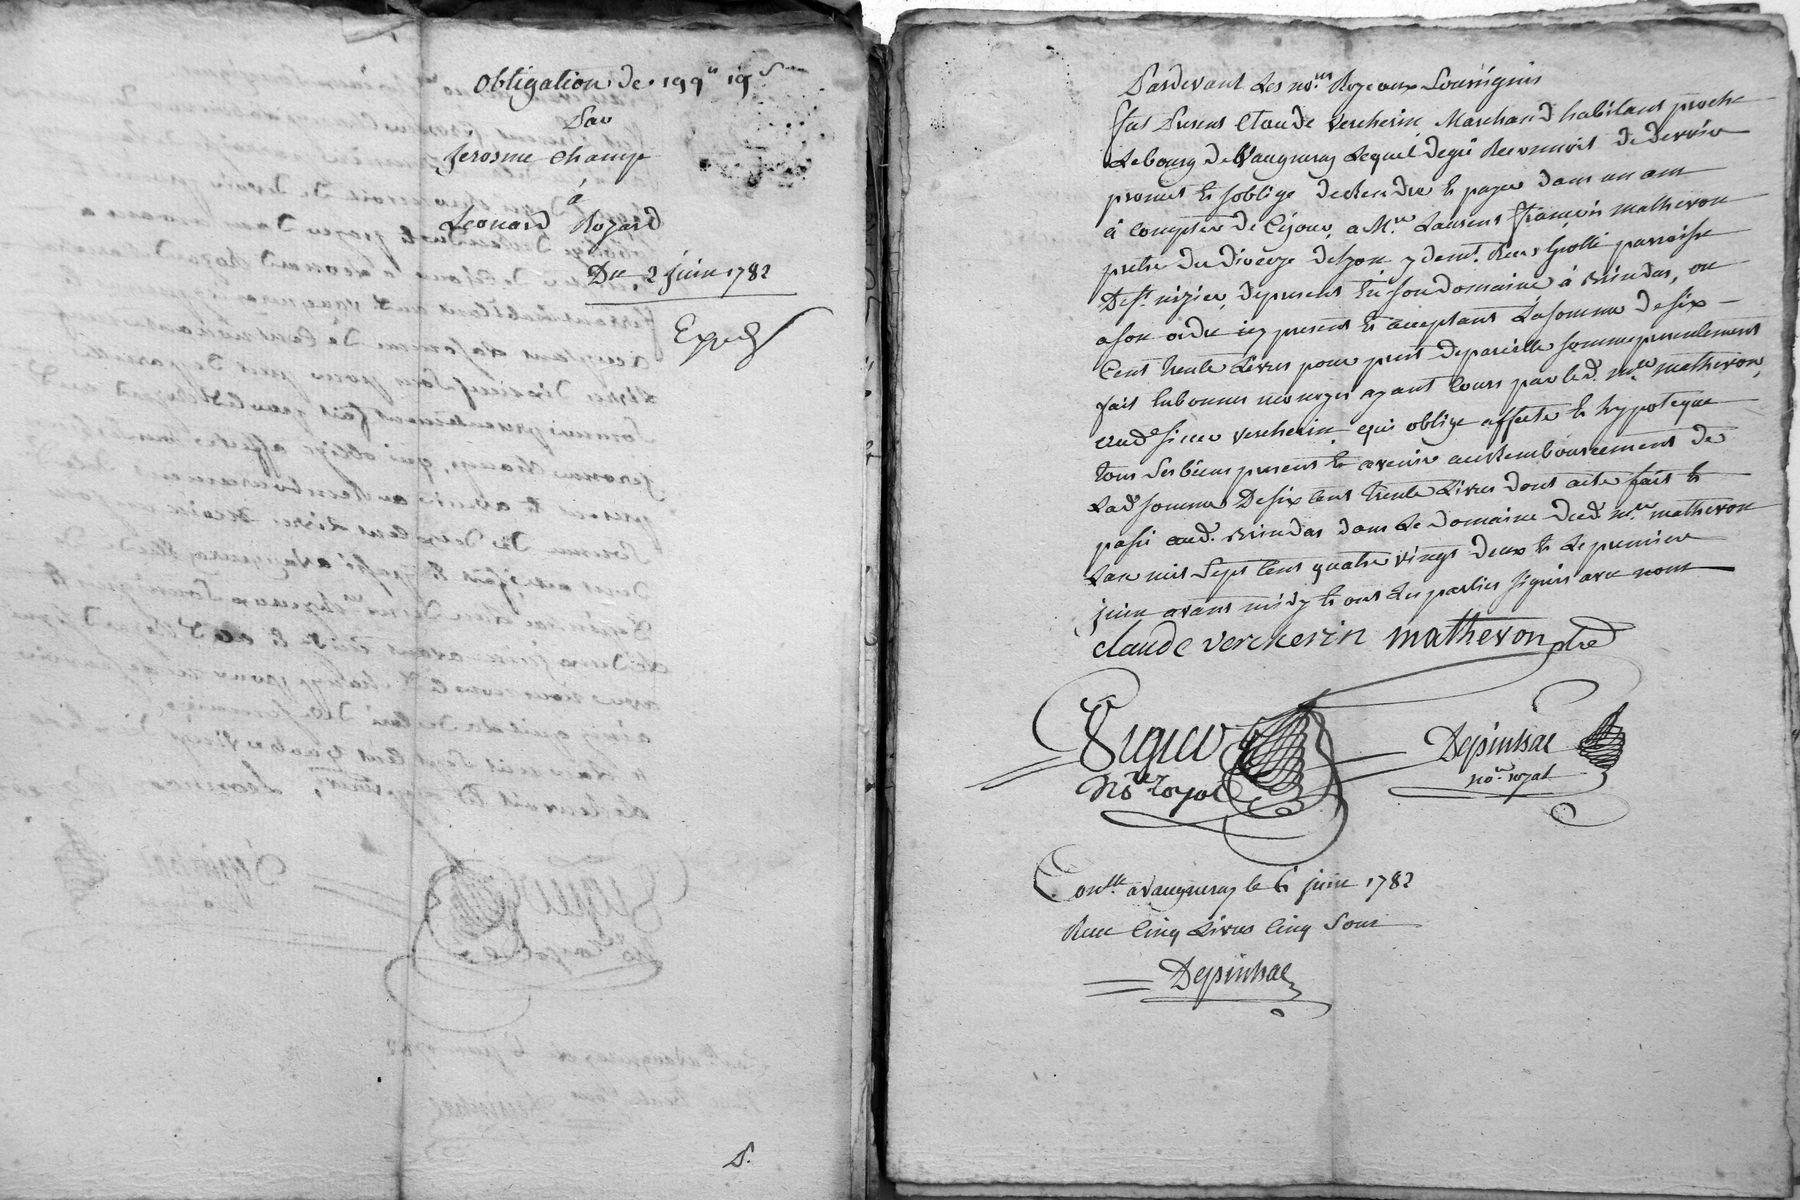 Obligation de 199ᵗᵗ 19ˢ
Par
jerosme champ
à
Leonard Rozard
Du 2 juin 1782
Expéd
S.
Pardevant Les no.ʳᵉˢ Royeaux Soussignés
fut Present Claude Vercherin Marchand habitant proche
Le bourg de Vaugneray Lequel de gré Reconnoit de devoir
promet et soblige de rendre et payer dans un an
à compter de Cejour, a M.ʳᵉ Laurent françois matheron
pretre du dioceze de Lyon y demt. Rue Grolée parroisse
De St. nizier, depresent en son domaine à Brindas, ou
a son ordre icy present et acceptant La somme de six
Cent trente Livres pour pret de pareille somme presentement
fait en bonnes especes ayant cours par led. m.ʳᵉ matheron,
aud. sieur Vercherin, qui oblige affecte et hypoteque
tous ses biens present et avenir au Remboursement de
Lad. somme De six cent trente Livres dont acte fait et
passé aud. Brindas dans Le domaine dud. m.ʳᵉ matheron
Lan mil Sept Cent quatre vingt deux et Le premier
juin avant midy et ont Les parties signés avec nous
claude vercherin matheron ptre
no.ʳᵉ Royal
Depinhac
no.ʳᵉ royal
Con.ˡˡᵉ a Vaugneray le 6 juin 1782
Reçu Cinq Livres Cinq Sous
Depinhac